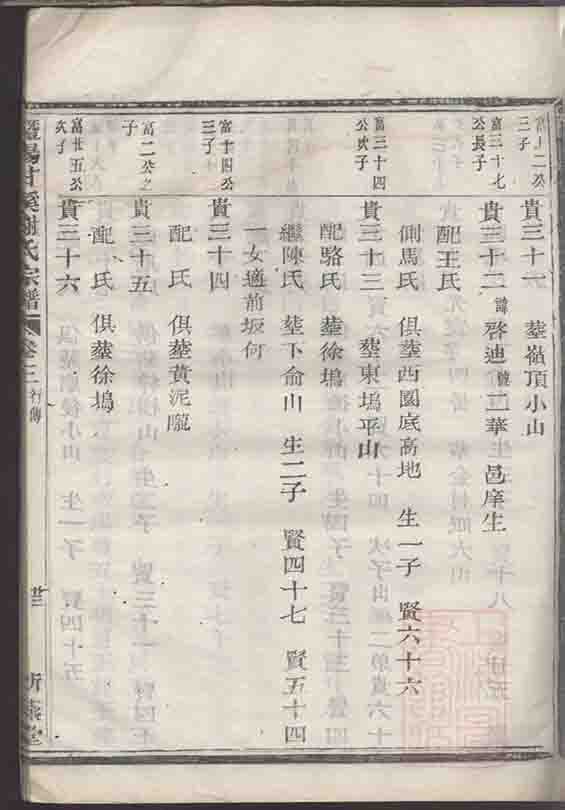 富十二公三子
貴三十一 塟嶺頂小山
富三十七公長子
貴三十二 諱啓迪號二華邑庠生
配王氏
側馬氏 俱塟西園底高地 生一子 賢六十六
富三十四公次子
貴三十三 塟東塢平山
配駱氏 塟徐塢
繼陳氏 塟下俞山 生二子 賢四十七 賢五十四
一女適前坂何
富十四公三子
貴三十四
配 氏 俱塟黃泥隴
富二公之子
貴三十五
配 氏 俱塟徐塢
富廿五公次子
貴三十六
暨陽甘溪謝氏宗譜 卷三 行傳